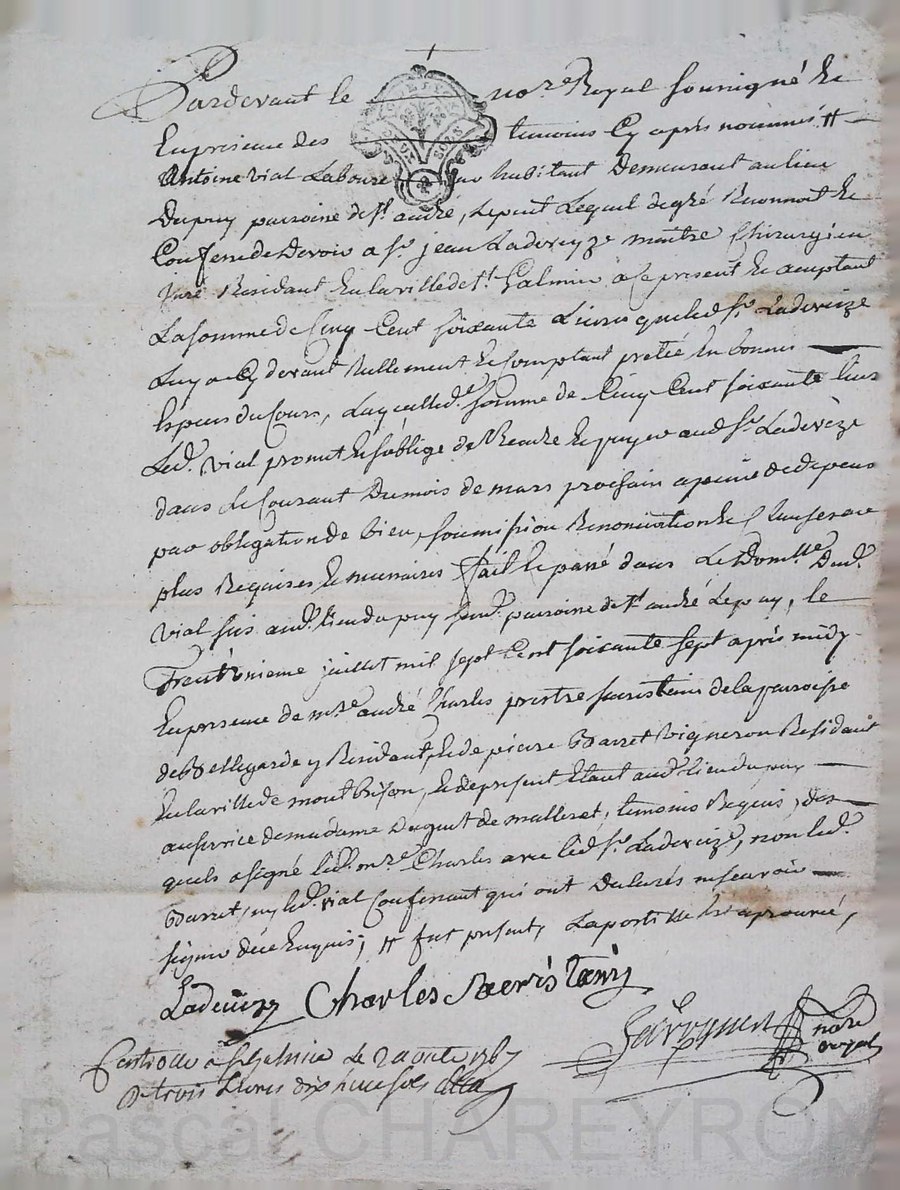 Pardevant le no.re Royal soussigné Et
En presence des temoins Cy après nommés #
Antoine vial Laboureur habitant Demeurant au lieu
Dupuy parroisse de s.t andré, Lepuit Lequel de gré Reconnoit Et
Confesse de Devoir a s.r jean Ladeveyze maitre Chirurgien
Juré Résidant En la ville de s.t Galmier a ce present Et aceptant
La somme de Cinq Cent soixante Livres que led. s.r Ladeveize
Luy a Cy devant Réllement Et Comptant pretté En bonnes
Especes du Cours, Laquelle d.e somme de Cinq Cent soixante livres
Led. vial promet Et s'oblige de Rendre Et payer aud. s.r Ladevèze
dans le Courant Du mois de mars prochain a peine de depens
par obligation de bien, soumission Renonciation Et Clauses au
plus Requises Et necessaires fait Et passé dans Le Domi.lle Dud.
vial sus aud. lieu du puy sud. parroisse de s.t andré Lepuy, le
Trent'unieme juillet mil sept Cent soixante sept après midy
En presence de m.re andré Charles prestre sacristain de la parroisse
de Bellegarde y Résidant, Et de pierre Barret vigneron Residant
En la ville de montbrison, Et de present Etant aud. lieu du puy
au service de madame Duguet de malleret, temoins Requis, des
quels a signé led. m.re Charles avec led. s.r Ladeveize, non led.
Barret, ny led. vial Confessant qui ont Declarés ne scavoir
signer de ce Enquis; # fut present, Lapostille Est aprouvé,
Ladeveze Charles Sacristain
no.re royal
Controllé a s.t Galmier le 2 aoust 1767
R. trois Livres dix huit sols
UN SOLS
Pascal CHAREYRON